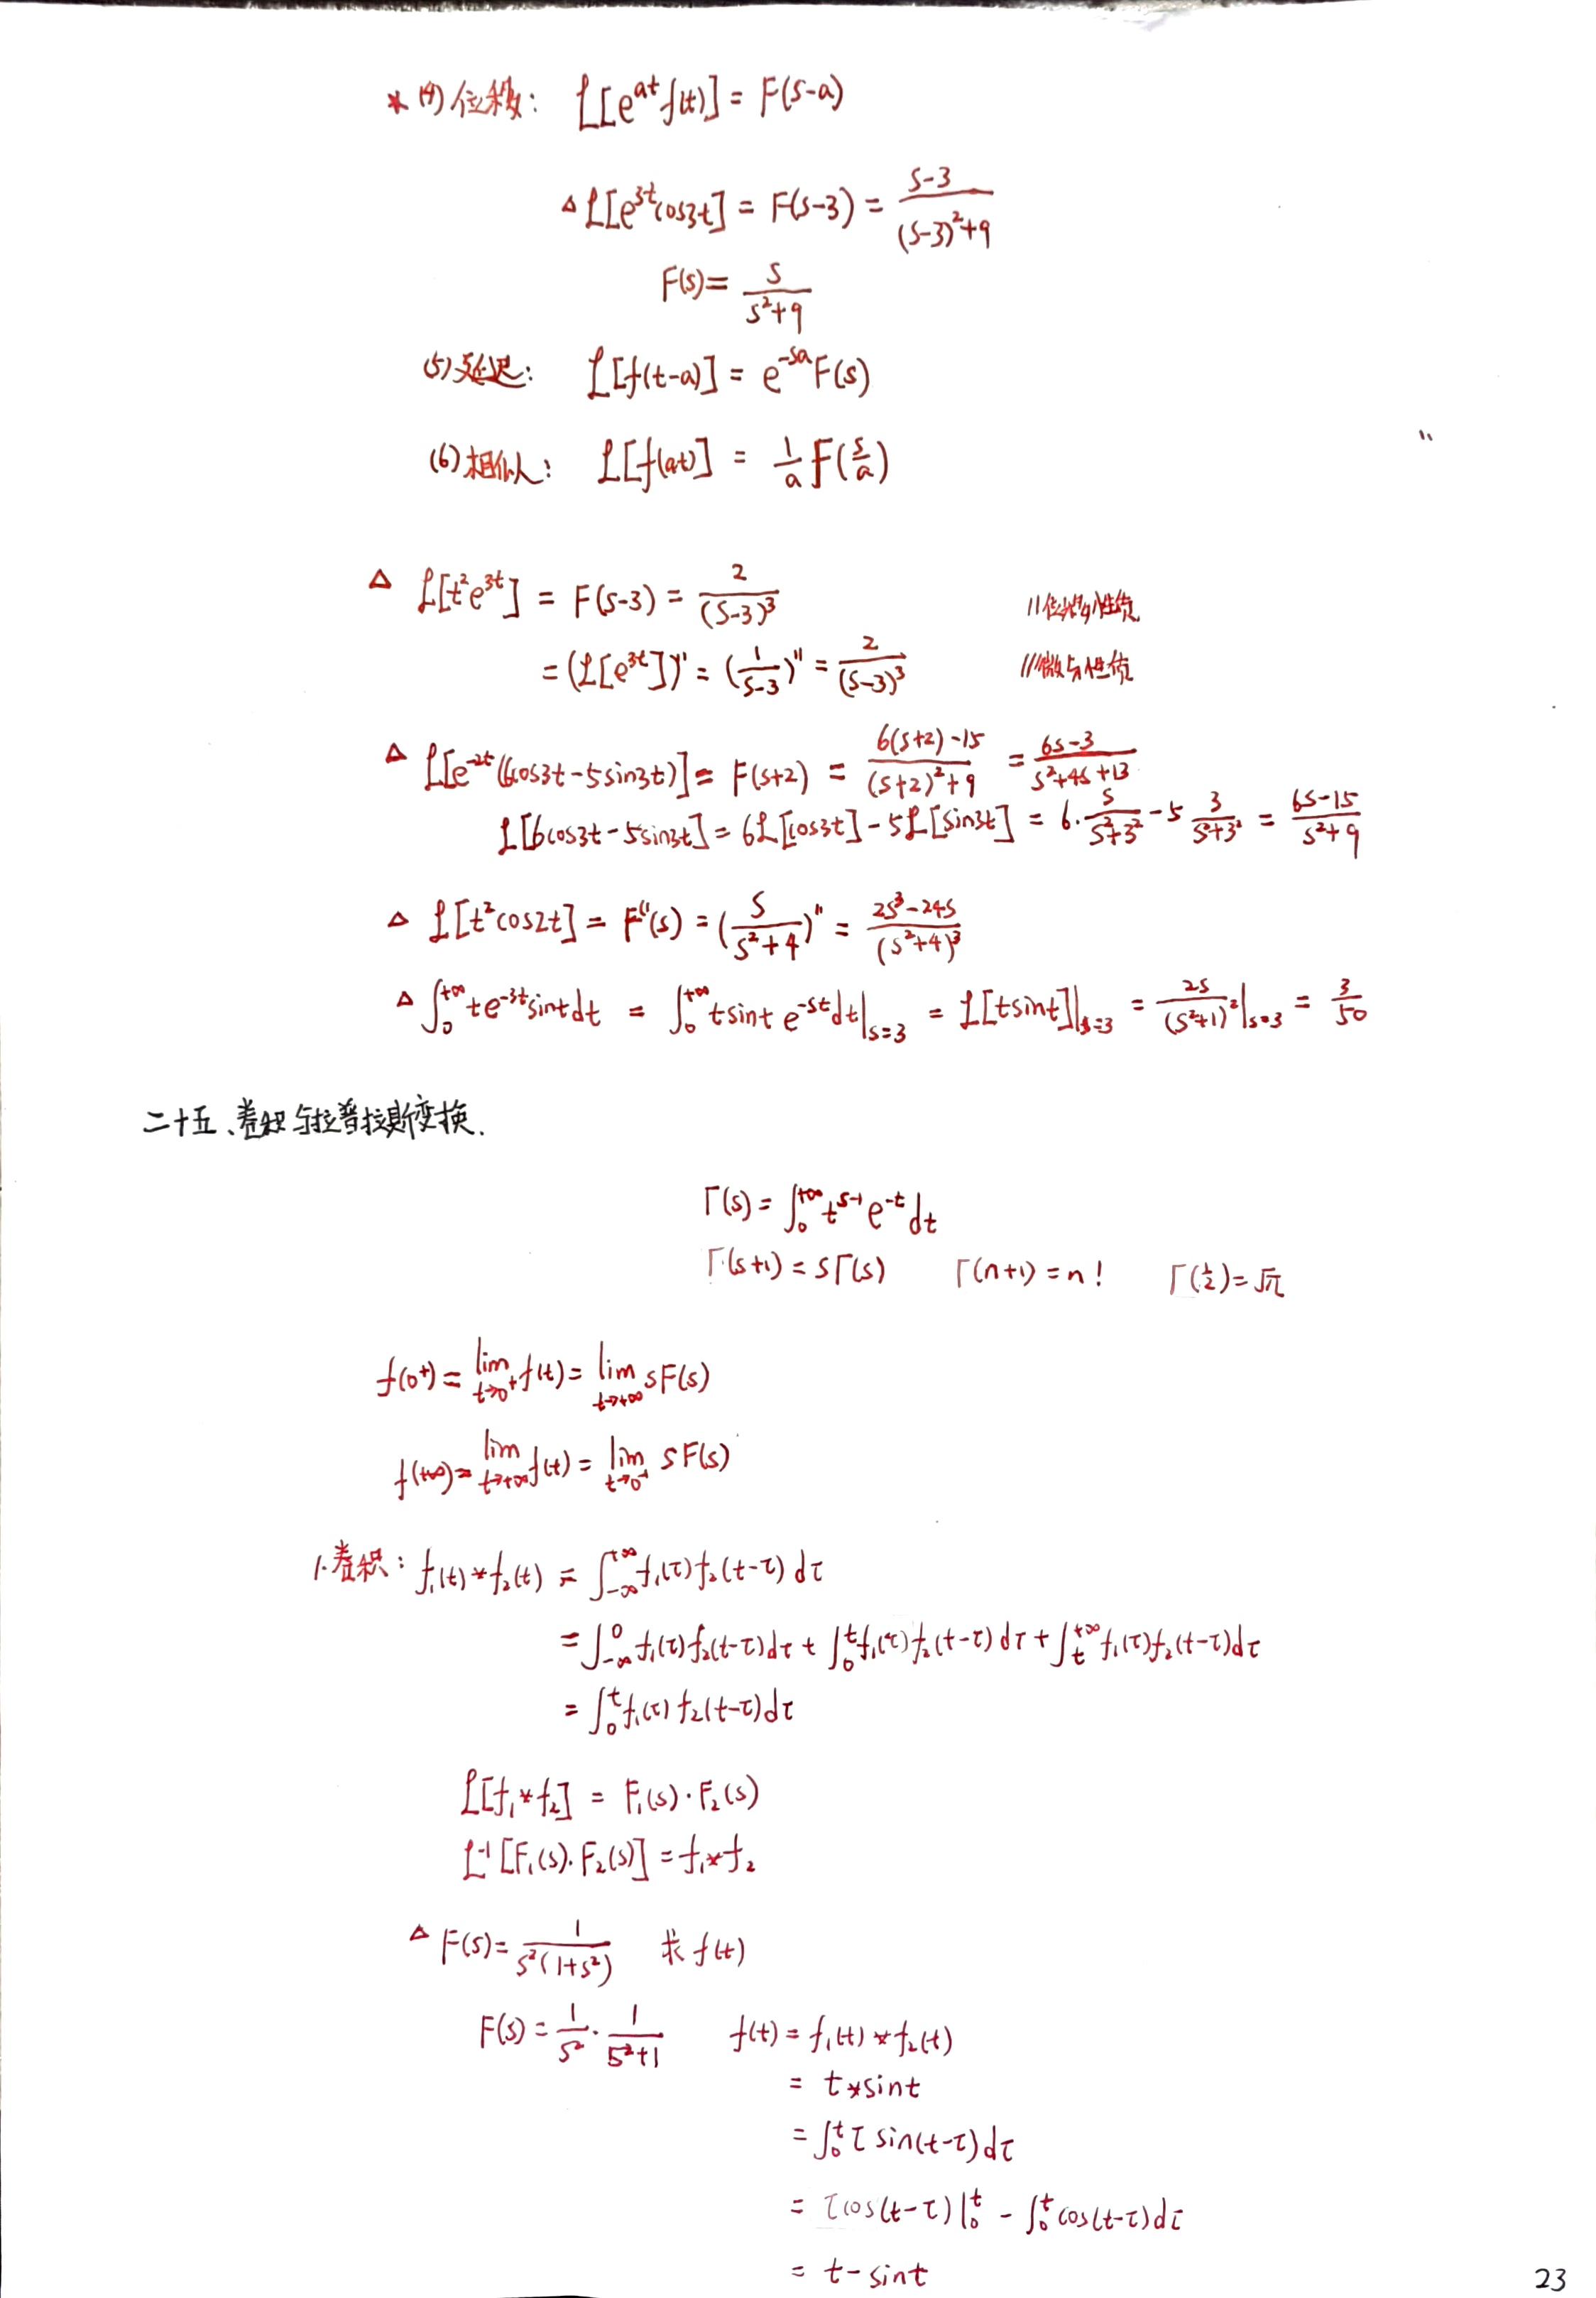 * (4) 位移: ℒ[e^{at}f(t)] = F(s-a)
△ ℒ[e^{3t}cos3t] = F(s-3) = \frac{s-3}{(s-3)^2+9}
F(s) = \frac{s}{s^2+9}
(5) 延迟: ℒ[f(t-a)] = e^{-sa}F(s)
(6) 相似: ℒ[f(at)] = \frac{1}{a}F(\frac{s}{a})
△ ℒ[t^2e^{3t}] = F(s-3) = \frac{2}{(s-3)^3} //位移性质
= (ℒ[e^{3t}])'' = (\frac{1}{s-3})'' = \frac{2}{(s-3)^3} //微分性质
△ ℒ[e^{-2t}(6cos3t-5sin3t)] = F(s+2) = \frac{6(s+2)-15}{(s+2)^2+9} = \frac{6s-3}{s^2+4s+13}
ℒ[6cos3t-5sin3t] = 6ℒ[cos3t]-5ℒ[sin3t] = 6·\frac{s}{s^2+3^2}-5\frac{3}{s^2+3^2} = \frac{6s-15}{s^2+9}
△ ℒ[t^2cos2t] = F''(s) = (\frac{s}{s^2+4})'' = \frac{2s^3-24s}{(s^2+4)^3}
△ ∫_0^{+∞}te^{-3t}sintdt = ∫_0^{+∞}tsint e^{-st}dt|_{s=3} = ℒ[tsint]|_{s=3} = \frac{2s}{(s^2+1)^2}|_{s=3} = \frac{3}{50}
二十五、卷积与拉普拉斯变换.
Γ(s) = ∫_0^{+∞}t^{s-1}e^{-t}dt
Γ(s+1) = sΓ(s) Γ(n+1) = n! Γ(\frac{1}{2}) = √π
f(0^+) = \lim_{t→0^+}f(t) = \lim_{t→+∞}sF(s)
f(+∞) = \lim_{t→+∞}f(t) = \lim_{t→0^+}sF(s)
1. 卷积: f_1(t)*f_2(t) = ∫_{-∞}^{+∞}f_1(τ)f_2(t-τ)dτ
= ∫_{-∞}^0f_1(τ)f_2(t-τ)dτ + ∫_0^tf_1(τ)f_2(t-τ)dτ + ∫_t^{+∞}f_1(τ)f_2(t-τ)dτ
= ∫_0^tf_1(τ)f_2(t-τ)dτ
ℒ[f_1*f_2] = F_1(s)·F_2(s)
ℒ^{-1}[F_1(s)·F_2(s)] = f_1*f_2
△ F(s) = \frac{1}{s^2(1+s^2)} 求f(t)
F(s) = \frac{1}{s^2}·\frac{1}{s^2+1} f(t) = f_1(t)*f_2(t)
= t*sint
= ∫_0^tτsin(t-τ)dτ
= τcos(t-τ)|_0^t - ∫_0^tcos(t-τ)dτ
= t-sint
23